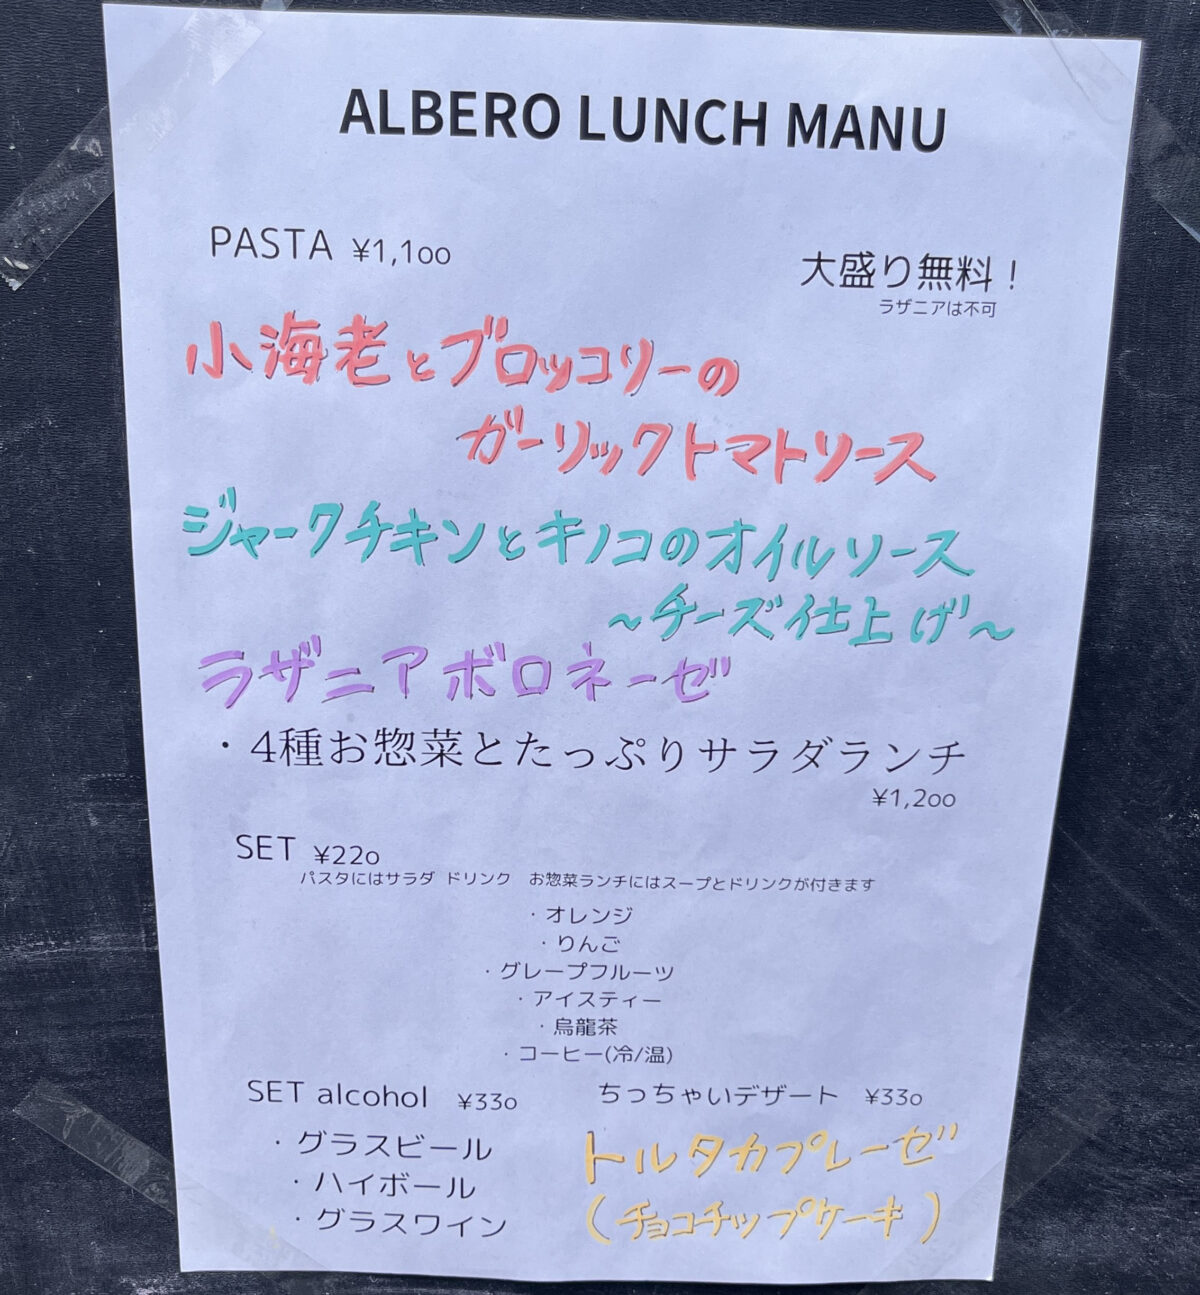 ALBERO LUNCH MANU
PASTA ¥1,100
大盛り無料！
ラザニアは不可
小海老とブロッコリーの
ガーリックトマトソース
ジャークチキンとキノコのオイルソース
～チーズ仕上げ～
ラザニアボロネーゼ
・4種お惣菜とたっぷりサラダランチ
¥1,200
SET ¥220
パスタにはサラダ ドリンク　お惣菜ランチにはスープとドリンクが付きます
・オレンジ
・りんご
・グレープフルーツ
・アイスティー
・烏龍茶
・コーヒー(冷/温)
SET alcohol ¥330
・グラスビール
・ハイボール
・グラスワイン
ちっちゃいデザート ¥330
トルタカプレーゼ
(チョコチップケーキ)